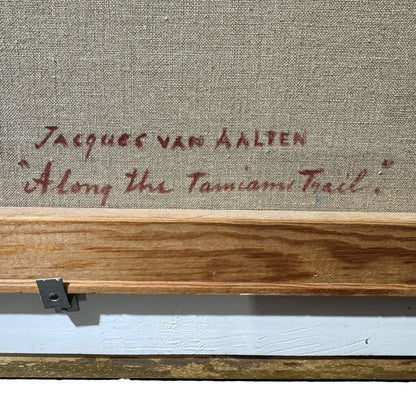 JACQUES VAN AALTEN
"Along the Tamiami Trail."